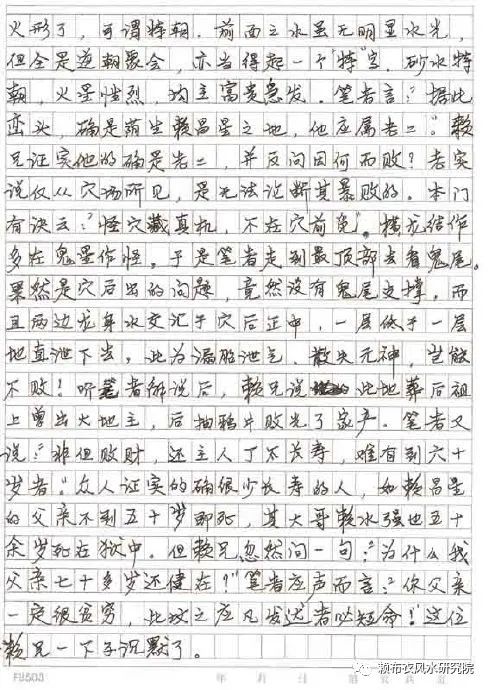 火形了，可谓特朝。前面之水虽无明显水光，
但全是逆朝聚会，亦当得起一个“特”字。砂水特
朝，火星性烈，均主富贵急发。笔者言：“据此
峦头，确是萌生赖昌星之地，他应属老二。”赖
兄证实他的确是老二，并反问因何而败？老实
说仅从穴场所见，是无法论断其暴败的。本门
有诀云：“怪穴藏真机，不在穴前觅”。横龙结作
多在鬼星作怪。于是笔者走到最顶部去看鬼尾。
果然是穴后出的问题，竟然没有鬼尾支撑。而
且两边龙身水交汇于穴后正中，一层低于一层
地直泄下去。此为漏胎泄气、散失元神，岂能
不败！听笔者解说后，赖兄说此地葬后祖
上曾出大地主，后抽鸦片败光了家产。笔者又
说：“非但败财，还主人丁不长寿，难有到六十
岁者。”众人证实的确很少长寿的人，如赖昌星
的父亲不到五十岁即死，其大哥赖水强也五十
余岁死在狱中。但赖兄忽然问一句：“为什么我
父亲七十多岁还健在？”笔者应声而言：“你父亲
一定很贫穷，此坟之应凡发达者必短命！”这位
赖兄一下子沉默了。
F8503 年 月 日
赖布衣风水研究院